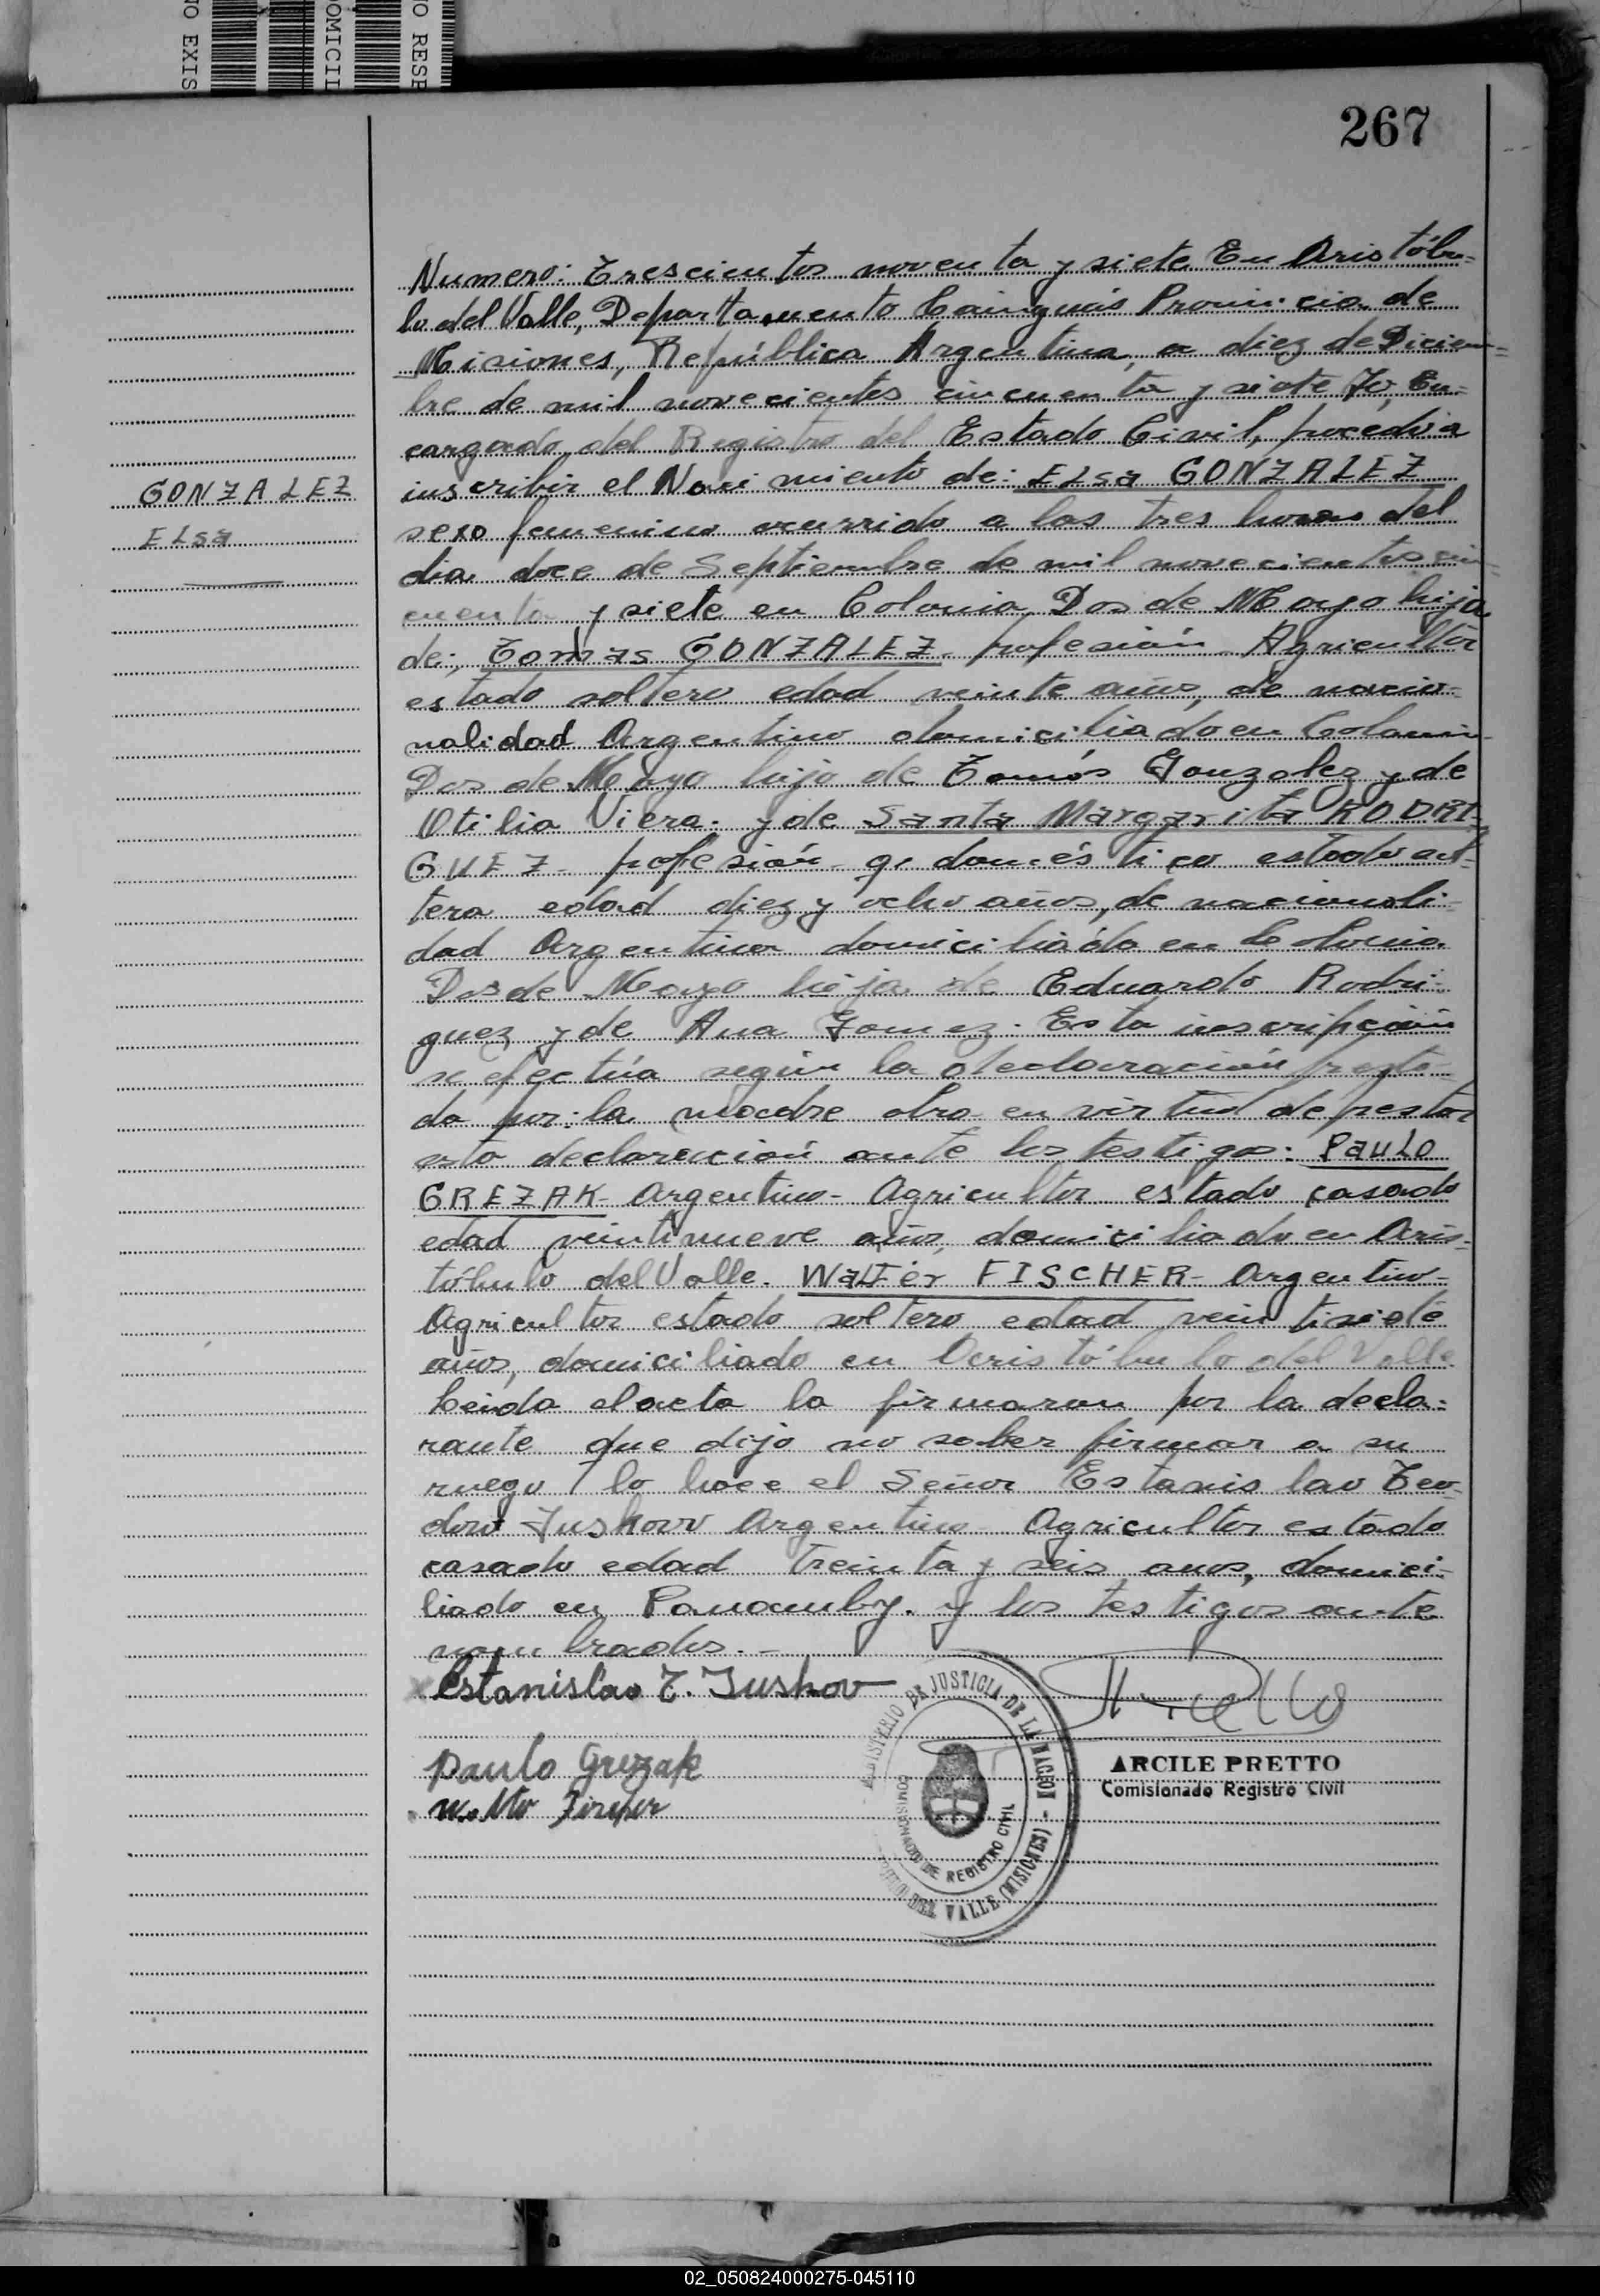 267
Numero: Trescientos noventa y siete En Aristóbu-
lo del Valle, Departamento Cainguás Provincia de
Misiones, República Argentina, a diez de Diciem-
bre de mil novecientos cincuenta y siete Yo, En-
cargado del Registro del Estado Civil, procedí a
GONZALEZ
inscribir el Nacimiento de: ELsa GONZALEZ
ELsa
sexo femenino ocurrido a las tres horas del
dia doce de Septiembre de mil novecientos cin-
cuenta y siete en Colonia Dos de Mayo hija
de; Tomas GONZALEZ- profesión- Agricultor
estado soltero edad veinte años, de nacio-
nalidad Argentino domiciliado en Colonia
Dos de Mayo hijo de Tomás Gonzalez y de
Otilia Viera. y de Santa Margarita RODRI-
GUEZ- profesión- q. doméstico estado sol-
tera edad diez y ocho años, de nacionali-
dad Argentina domiciliada en Colonia
Dos de Mayo hija de Eduardo Rodri-
guez y de Ana Gomez. Esta inscripción
se efectúa según la declaración presta-
da por: la madre obra en virtud de prestar
esta declaración ante los testigos: PauLo
GREZAK- Argentino- Agricultor estado casado
edad veintinueve años, domiciliado en Aris-
tóbulo del Valle. WaLTer FISCHER- Argentino-
Agricultor estado soltero edad veintisiete
años, domiciliado en Aristóbulo del Valle
Leida el acta la firmaron por la decla-
rante que dijo no saber firmar a su
ruego lo hace el Señor Estanislao Teo-
doro Jushovv Argentino- Agricultor estado
casado edad treinta y seis anos, domici-
liado en Panamby. y los testigos ante
nombrados.-
Estanislao T. Jushov
Paulo Grezak
ARCILE PRETTO
Comisionado Registro Civil
MINISTERIO DE JUSTICIA DE LA NACION - DEL VALLE (MISIONES)
COMISIONADO DE REGISTRO CIVIL
02_050824000275-045110